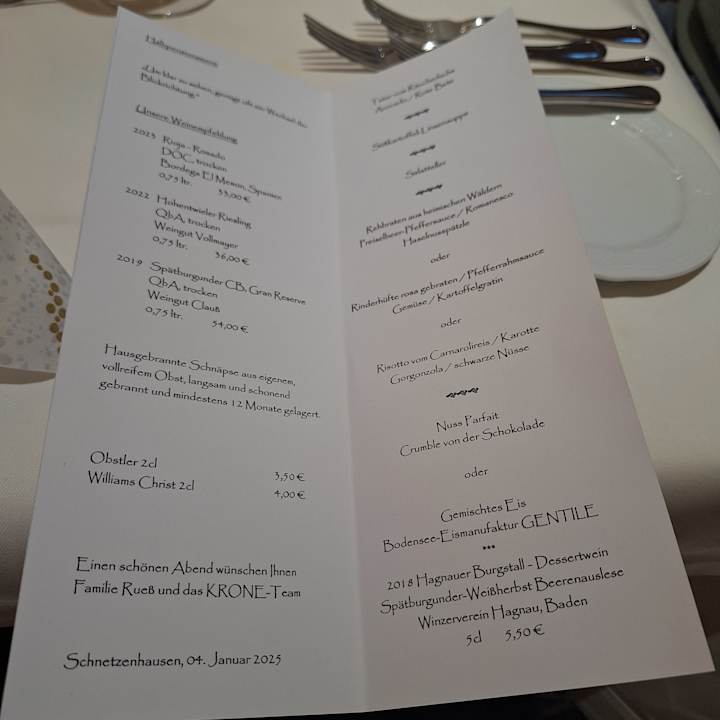 Halbpensionsmenü
»Um klar zu sehen, genügt oft ein Wechsel der
Blickrichtung.«
Unsere Weinempfehlung
2023 Rioja - Rosado
DOC, trocken
Bordega El Meson, Spanien
0,75 ltr. 33,00 €
2022 Hohentwieler Riesling
QbA, trocken
Weingut Vollmayer
0,75 ltr. 36,00 €
2019 Spätburgunder CB, Gran Reserve
QbA, trocken
Weingut Clauß
0,75 ltr. 54,00 €
Hausgebrannte Schnäpse aus eigenem,
vollreifem Obst, langsam und schonend
gebrannt und mindestens 12 Monate gelagert.
Obstler 2cl 3,50 €
Williams Christ 2cl 4,00 €
Einen schönen Abend wünschen Ihnen
Familie Rueß und das KRONE-Team
Schnetzenhausen, 04. Januar 2025
Tatar vom Räucherlachs
Avocado / Rote Bete
Süßkartoffel-Linsensuppe
Salatteller
Rehbraten aus heimischen Wäldern
Preiselbeer-Pfeffersauce / Romanesco
Haselnusspätzle
oder
Rinderhüfte rosa gebraten / Pfefferrahmsauce
Gemüse / Kartoffelgratin
oder
Risotto vom Carnarolireis / Karotte
Gorgonzola / schwarze Nüsse
Nuss Parfait
Crumble von der Schokolade
oder
Gemischtes Eis
Bodensee-Eismanufaktur GENTILE
***
2018 Hagnauer Burgstall - Dessertwein
Spätburgunder-Weißherbst Beerenauslese
Winzerverein Hagnau, Baden
5cl 5,50 €